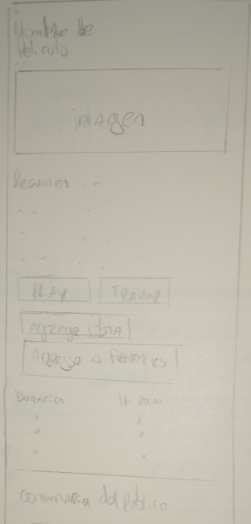 Nombre de
Película
imagen
Resumen . . -
PLAY
TRAILER
Agregar Lista
Agregar a Favoritos
Duración
Comentarios del público